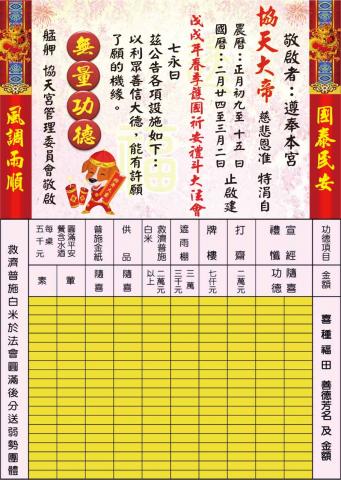 國泰民安
敬啟者：遵奉本宮
協天大帝 慈悲恩准 特涓自
農曆：正月初九至十五日
國曆：二月廿四至三月二日 止啟建
戊戌年春季護國祈安禮斗大法會
七永日
茲公告各項設施如下：
以利眾善信大德，能有許願
了願的機緣。
無量功德
艋舺 協天宮管理委員會敬啟
風調雨順
福
功德項目
金額
喜種福田 善德芳名及金額
宣經禮懺
隨喜功德
打齋
二萬元
牌樓
七仟元
遮雨棚
三萬三千元
救濟普施白米
二萬元以上
供品
隨喜
普施金紙
隨喜
圓滿平安餐含水酒每桌五千元
葷
素
救濟普施白米於法會圓滿後分送弱勢團體